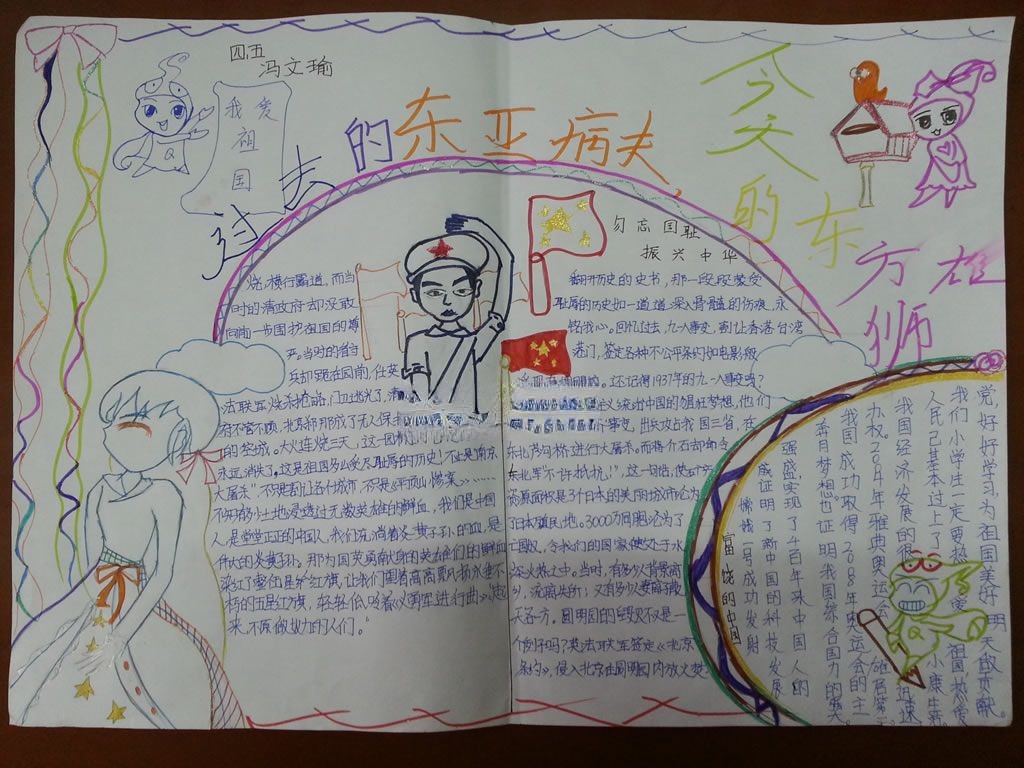 四、五
冯文瑜
我爱
祖
国
过去的东亚病夫,
今天的东方雄狮
勿忘国耻
振兴中华
翻开历史的史书,那一段段蒙受
耻辱的历史如一道道深入骨髓的伤痕,永
铭我心。回忆过去,九一八事变,割让香港台湾
港门,签定各种不公平条约如电影般
。还记得1937年的九一八事变吗?
统治中国的猖狂梦想,他们
个事变,出兵攻占我国三省,在
东北芦沟桥进行大屠杀。而蒋介石却命令
东北军"不许抵抗!",这一句话,使矿产
资源面积是3个日本的美丽城市沦为
了日本殖民地。3000万同胞沦为了
亡国奴,令我们的国家便处于水
深火热之中。当时,有多少人背景离
乡,流离失所;又有多少人妻离子散
天各一方。圆明园的毁灭不仅是一
个例子吗?英法联军签定《北京
条约》,侵入北京在圆明园内放火焚
烧,横行霸道,而当
时的清政府却没敢
向前一步围护祖国的尊
严。当时的省
兵却跪在园前,任英
法联军烧杀抢掠,
府不管不顾,北京都那成了无人保
的空城。大火连烧三天,这一园林
永远消失了。这是祖国多么受尽耻辱的历史!不止是"南京
大屠杀"不只是割让各个城市,不只是《平顶山惨案》……
不知有多少土地浸透过无数英雄的鲜血,我们是中国
人,是堂堂正正的中国人,我们充淌着炎黄子孙的血,是
伟大的炎黄子孙。那为国英勇献身的英雄他们的鲜血
染红了壹住是个红旗,让我们围着高高飘扬永垂不
朽的五星红旗,轻轻低吟着《义勇军进行曲》,起
来,不愿做奴力的人们。"
党,好好学习,为祖国美好明天做贡献。
我们小学生一定要热爱祖国,热爱
人民已基本过上了小康生活。
我国经济发展的很迅速
办权。2004年雅典奥运会雄居第二
我国成功取得2008年奥运会的主
奔月梦想。也证明我国综合国力的强大
强盛,实现了四百年来中国人的
成证明了新中国的科技发展
嫦娥一号成功发射
富饶的中国